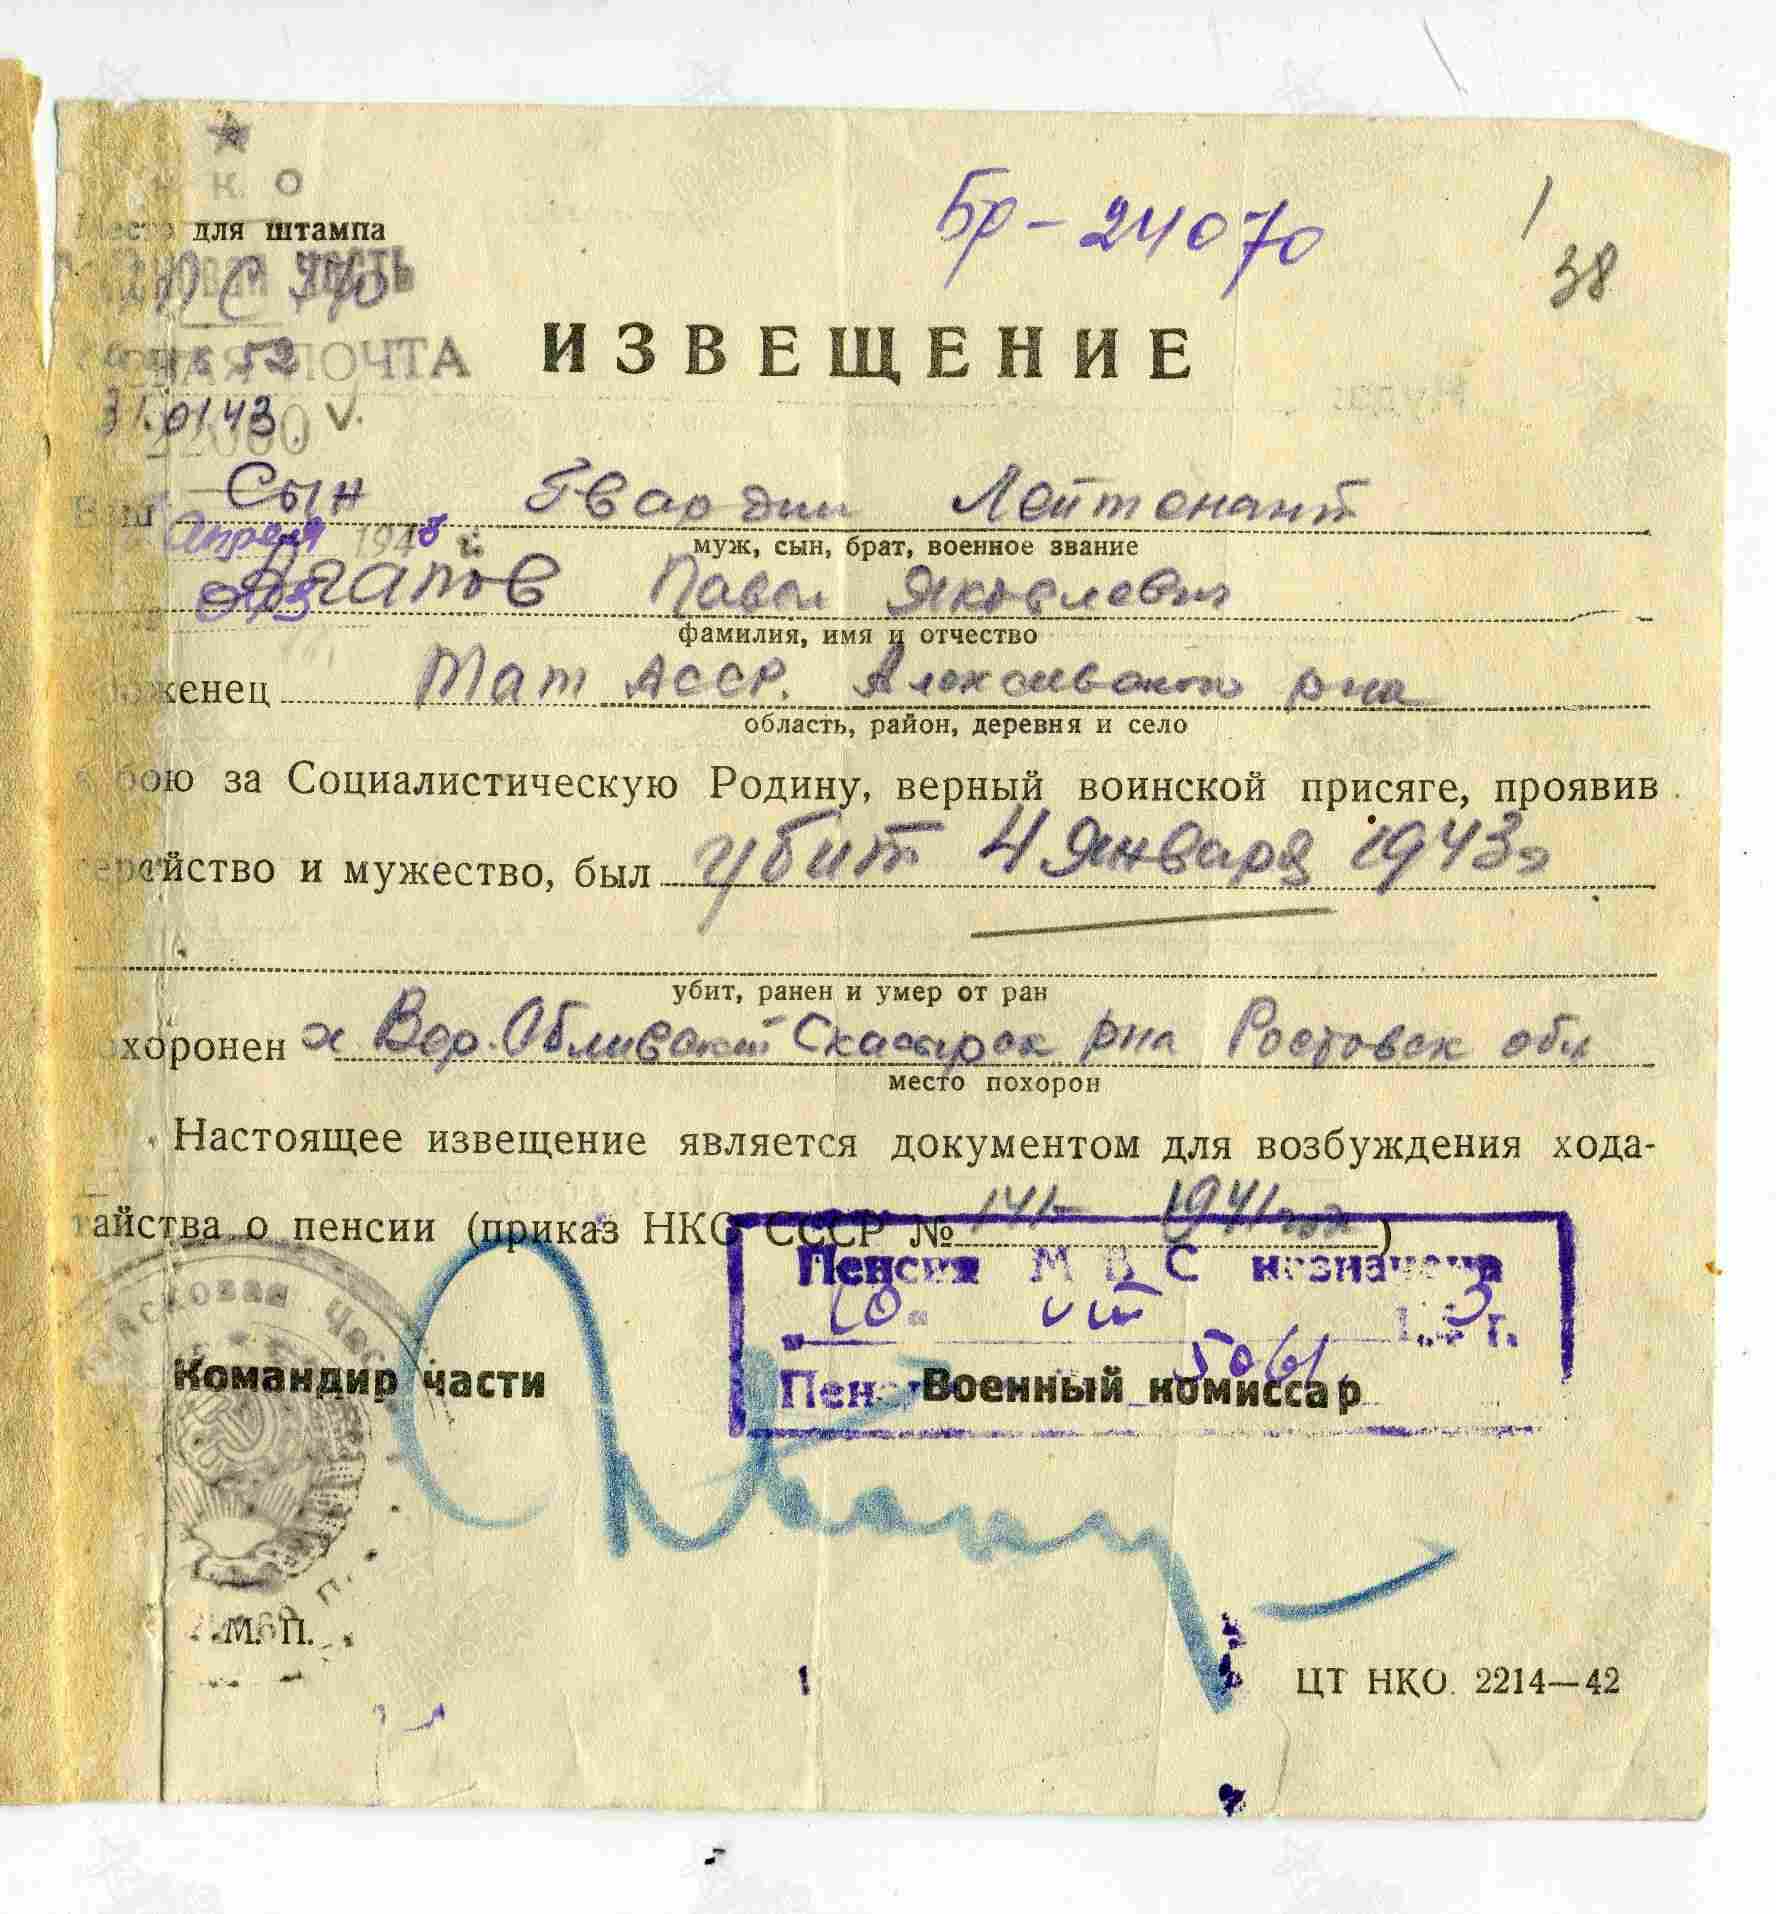 Н К О
Место для штампа
Бр-24070
38
ЧАСТЬ
ПОЧТА
ИЗВЕЩЕНИЕ
31.01.43
Ваш Сын Гвардии Лейтенант
апреля 1948 г.
муж, сын, брат, военное звание
Агапов Павел Яковлевич
фамилия, имя и отчество
оженец Тат АССР. рна
область, район, деревня и село
в бою за Социалистическую Родину, верный воинской присяге, проявив
геройство и мужество, был убит 4 Января 1943г
убит, ранен и умер от ран
похоронен х Вер. Обливский Скасырск рна Ростовск обл
место похорон
Настоящее извещение является документом для возбуждения хода-
тайства о пенсии (приказ НКО СССР № 141 1941 год)
Пенсия М В С назначена
10
г.
5061
Командир части Военный комиссар
М. П.
ЦТ НКО. 2214—42